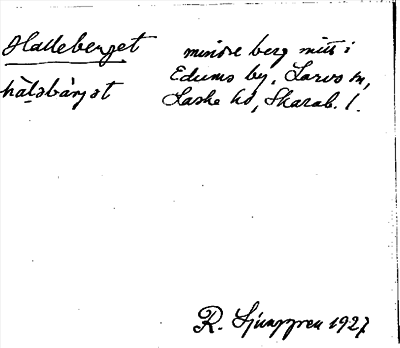 Halleberget
hàləbárjət
mindre berg mitt i
Edums by, Larvs sn,
Laske hd, Skarab. l.
R. Ljunggren 1927